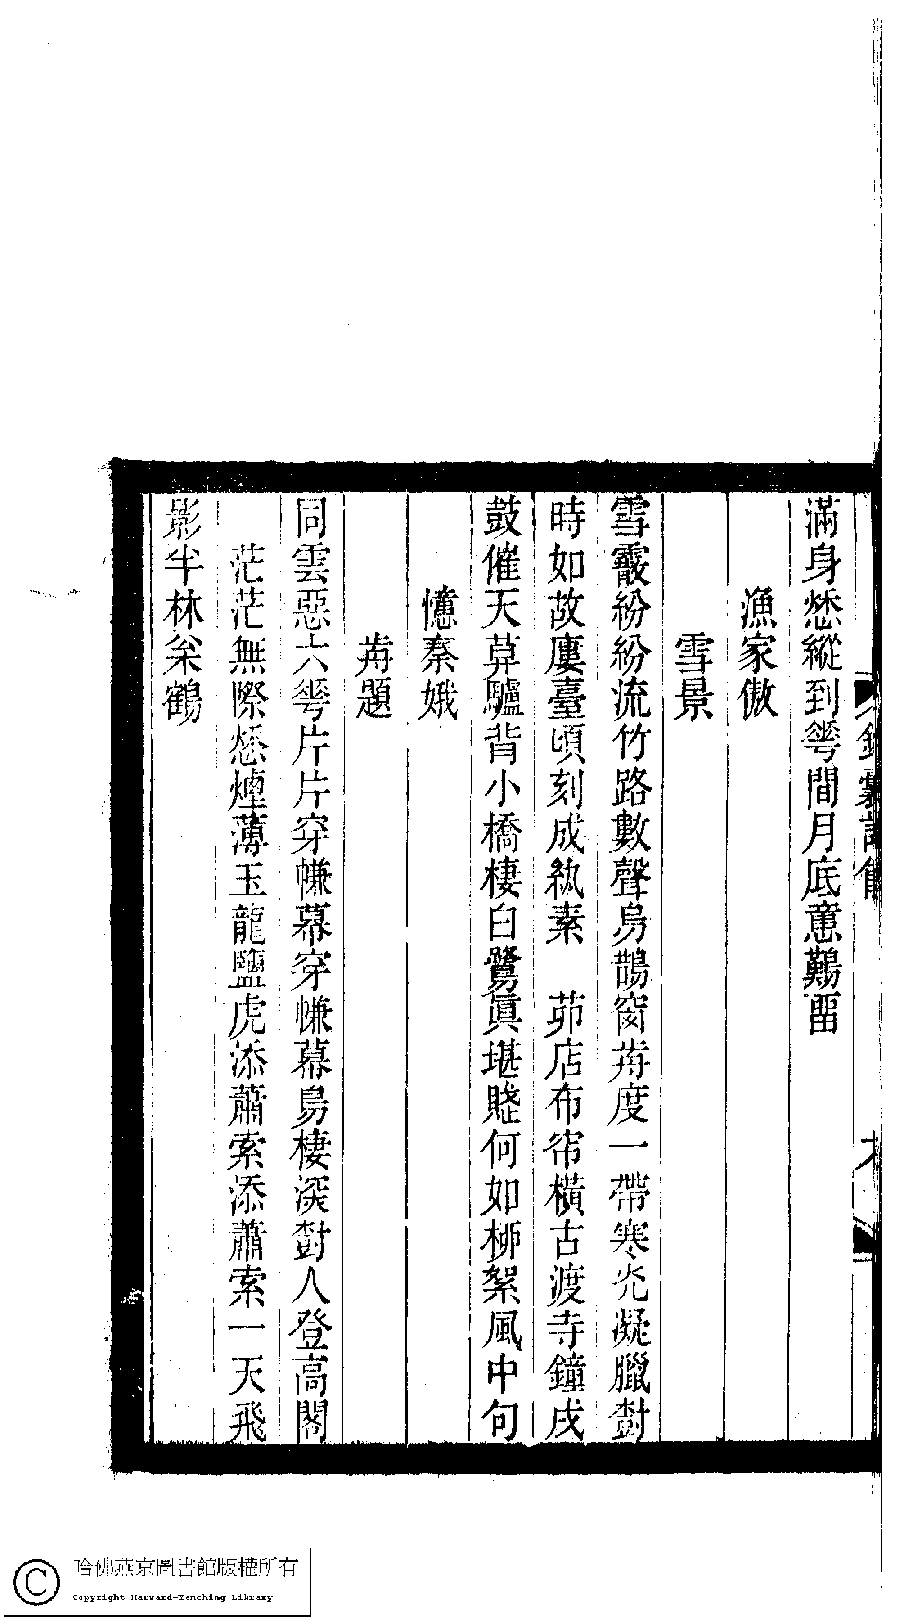 滿身愁縱到蕚間月底意鷬畱
漁家傲
雪景
雪霰紛紛流竹路數聲烏鵲窗歬度一帶寒光凝臘對
時如故廔臺頃刻成紈素　茆店布帘橫古渡寺鐘戍
鼓催天莫驢背小橋棲白鷺眞堪賤何如桺絮風中句
憶秦娥
歬題
同雲惡六蕚片片穿㡘幕穿㡘幕鳥棲深對人登高閣
茫茫無際愁煙薄玉龍鹽虎添蕭索添蕭索一天飛
影半林
鶴
哈佛燕京圖書館版權所有
Copyright Harvard-Yenching Library